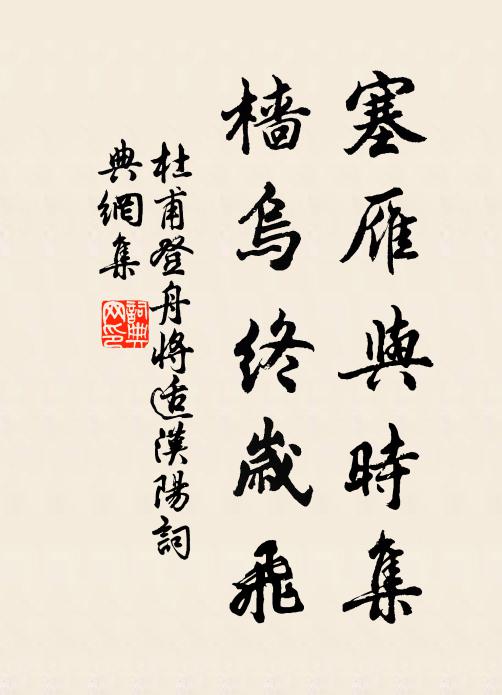 塞雁與時集
檣烏終歲飛
杜甫登舟將适漢陽詞
典網集
詞典
网印